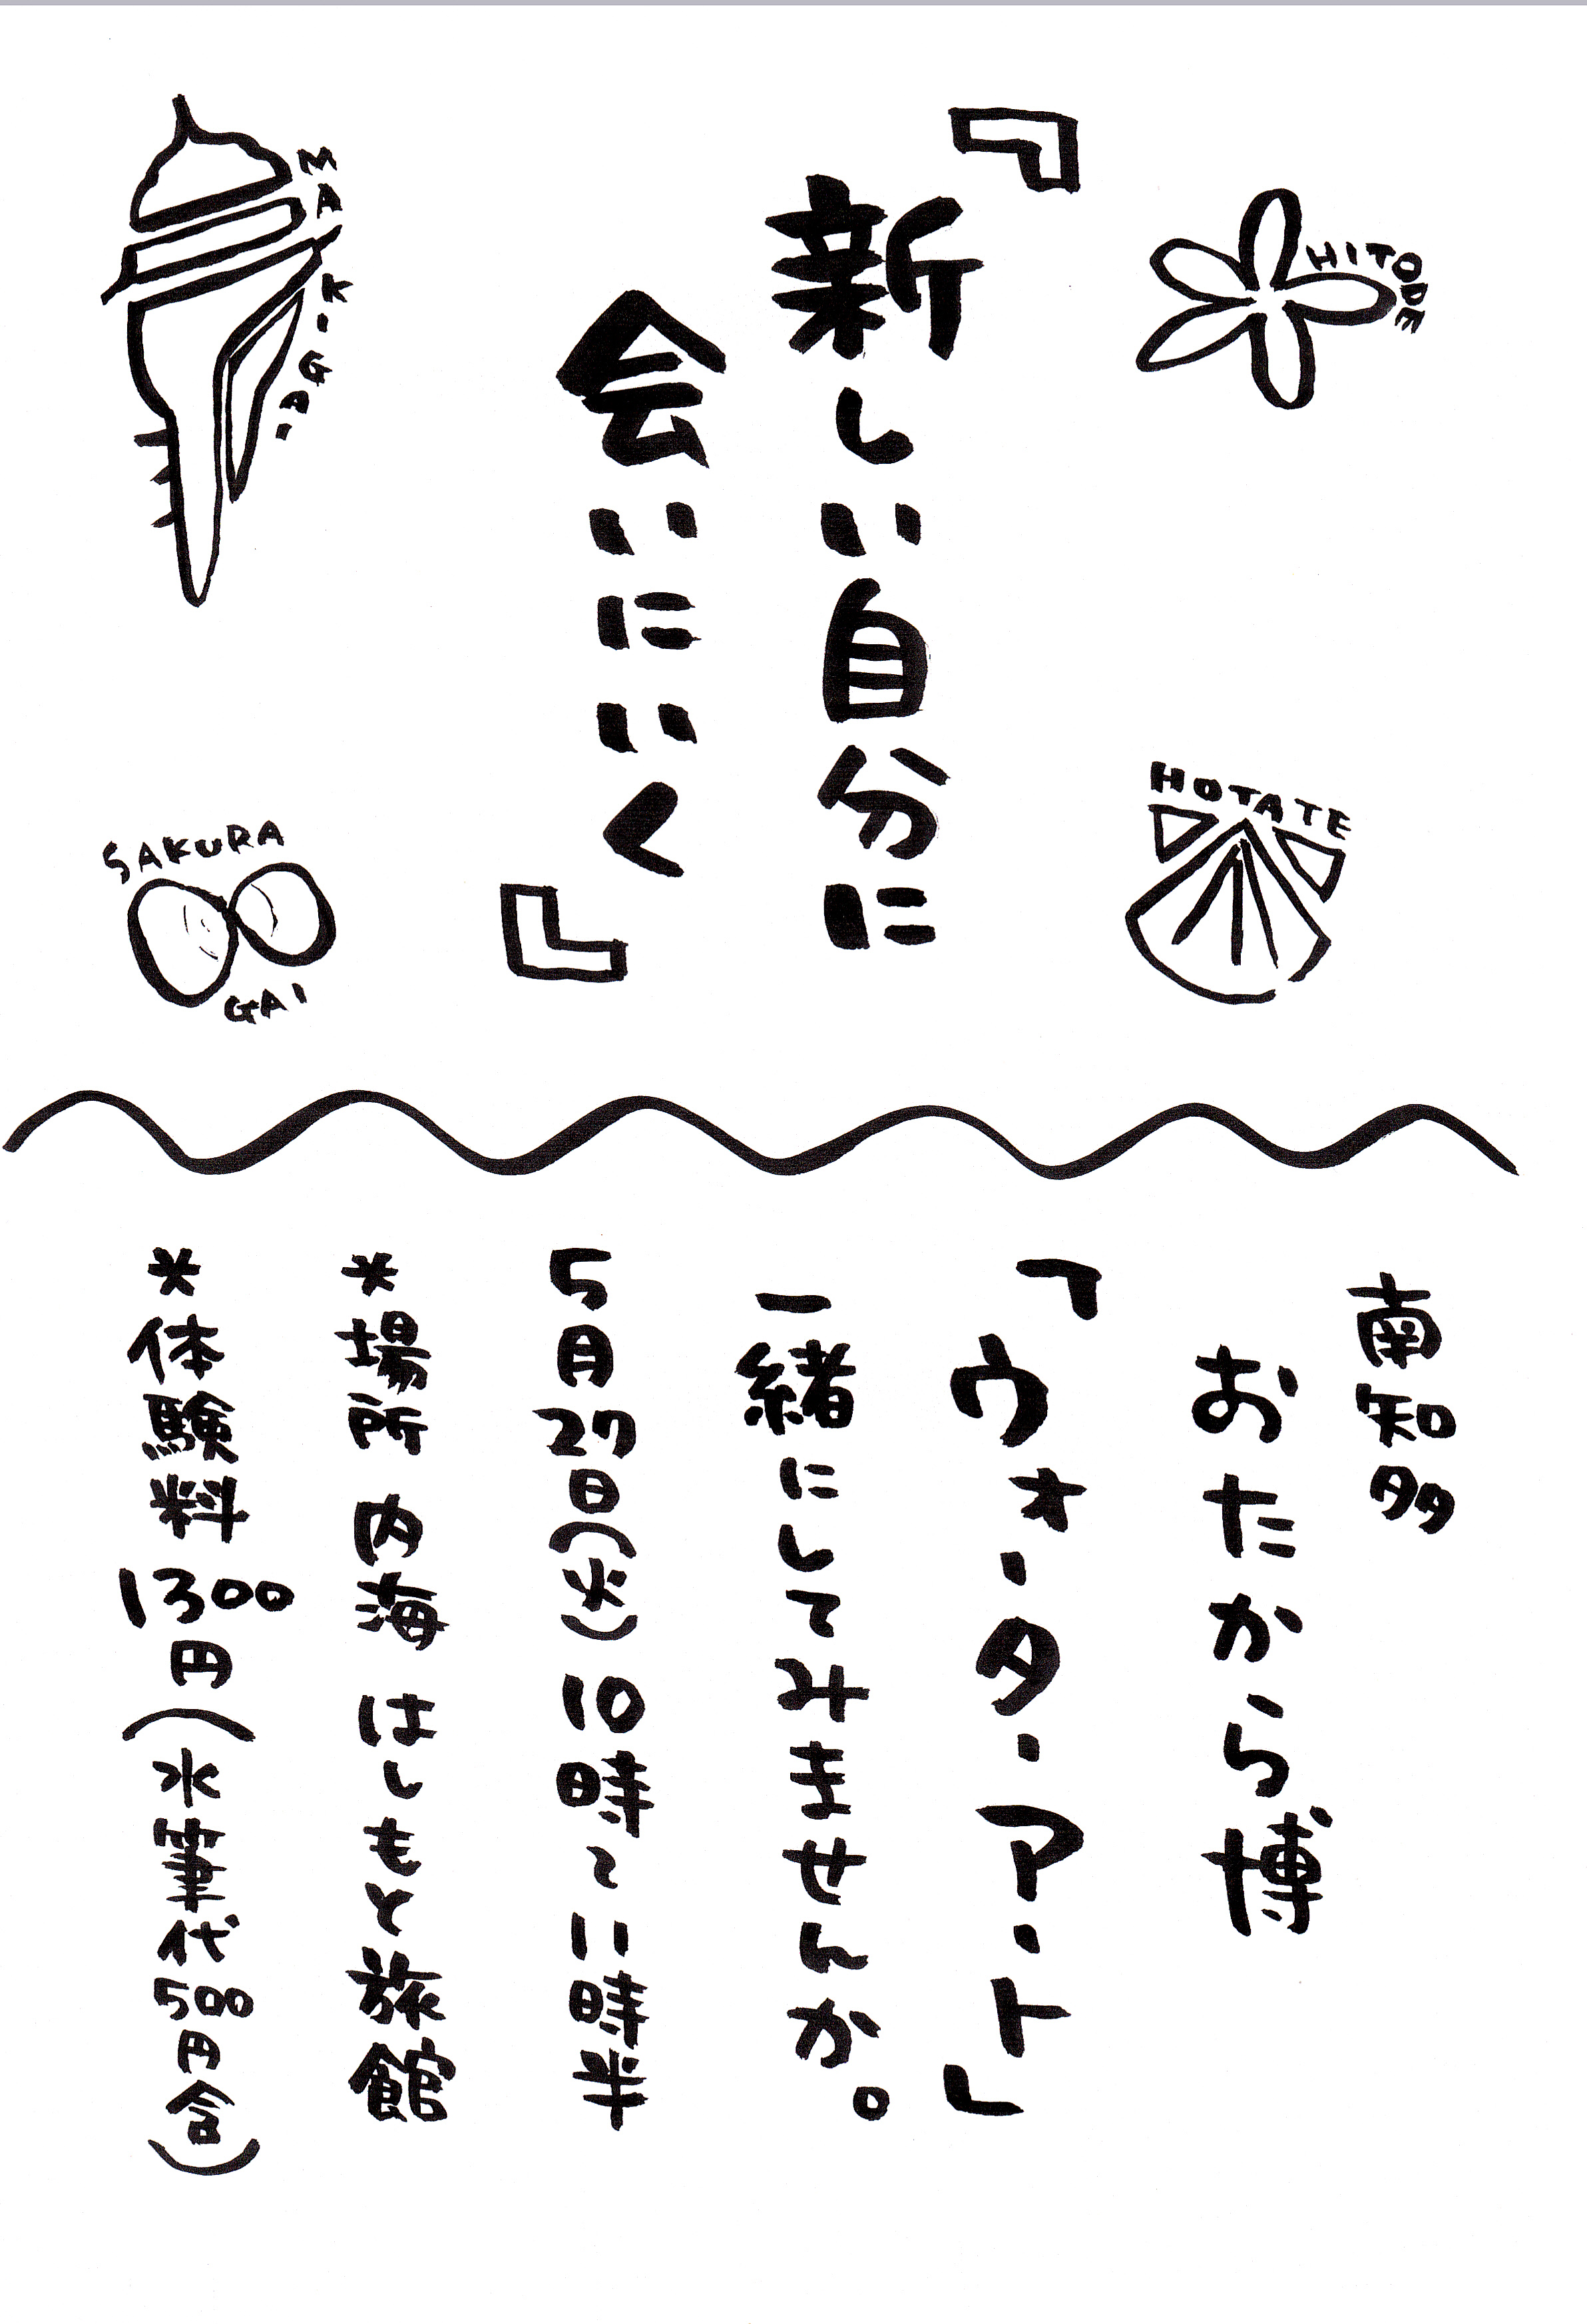 『新しい自分に
会いにいく』
HITODE
HOTATE
MAKIGAI
SAKURA
GAI
南知多
おたから博
「ウォーターアート」
一緒にしてみませんか。
5月27日(火)10時~11時半
*場所 内海 はしもと旅館
*体験料1300円(水筆代500円含)